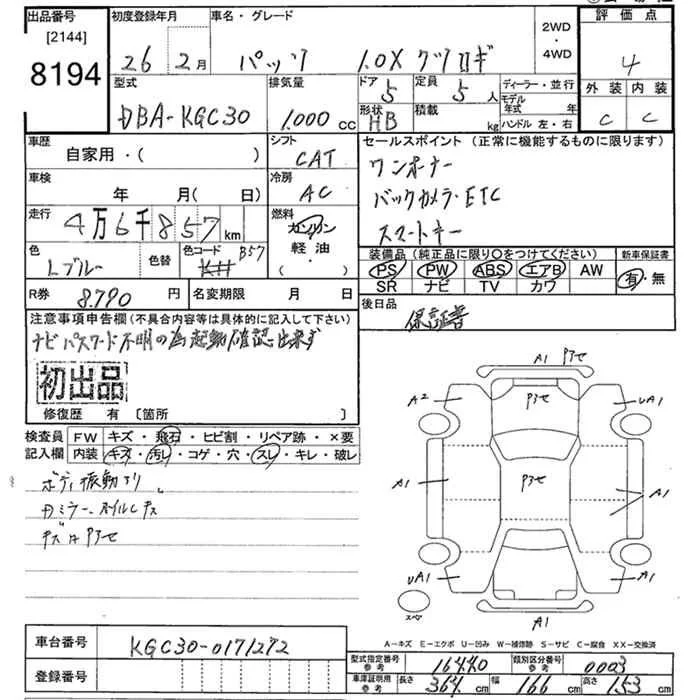 出品番号 初度登録年月 車名・グレード 評価点
[2144] 2WD
8194 26 2月 パッソ 1.0X クツロギ ・ 4WD 4
型式 排気量 ドア 5 定員 5人 ディーラー・並行 外装 内装
DBA-KGC30 1.000cc 形状 HB 積載 kg モデル年式 年 C C
ハンドル 左・右
車歴 シフト セールスポイント (正常に機能するものに限ります)
自家用・( ) CAT ワンオーナー
車検 冷房
年 月( 日) AC バックカメラ・ETC
走行 4万6千857km 燃料 ガソリン スマートキー
軽油
・( )
色 Lブルー 色替 色コード B57 装備品 (純正品に限り〇をつけてください) 新車保証書
PS PW ABS エアB AW 有・無
SR ナビ TV カワ
R券 8.790円 名変期限 月 日 後日品
保証書
注意事項申告欄 (不具合内容等は具体的に記入して下さい)
ナビパスワード不明の為起動確認出来ず
初出品
修復歴 有 [箇所 ]
検査員 FW キズ・飛石・ヒビ割・リペア跡・×要
記入欄 内装 キズ・汚レ・コゲ・穴・スレ・キレ・破レ
A1
A2 UA1
A1 A1
UA1 A1
スペア A1
A-キズ E-エクボ U-凹み W-補修跡 S-サビ C-腐食 XX-交換済
車台番号 KGC30-0171272
型式指定番号 参考 16440 類別区分番号 参考 0003
登録番号
車庫証明用 参考 長さ 364cm 幅 166cm 高さ 153cm